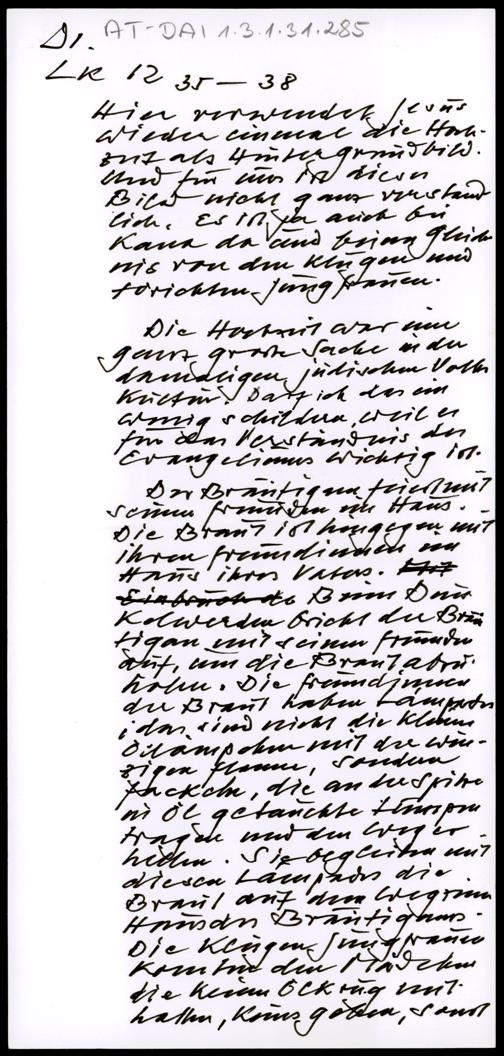 Di. AT-DAI 1.3.1.31.285
Lk 12 35-38
Hier verwendet Jesus
wieder einmal die Hoch-
zeit als Hintergrundbild.
Und für uns ist dieses
Bild nicht ganz verständ
lich. Es ist ja auch bei
Kana da und beim Gleich
nis von den klugen und
törichten Jungfrauen.
Die Hochzeit war eine
ganz große Sache in der
damaligen jüdischen Volks
kultur. Darf ich das ein
wenig schildern, weil es
für das Verständnis des
Evangeliums wichtig ist.
Der Bräutigam feiert mit
seinen Freunden im Haus.
Die Braut ist hingegen mit
ihren Freundinnen im
Haus ihres Vaters.
Beim Dun
kelwerden bricht der Bräu
tigam mit seinen Freunden
auf, um die Braut abzu
holen. Die Freundinnen
der Braut haben Lampades
, das sind nicht die kleinen
Öllämpchen mit der win-
zigen Flamme, sondern
Fackeln, die an der Spitze
in Öl getauchte Lumpen
tragen und den Weg er-
hellen. Sie begleiten mit
diesen Lampades die
Braut auf dem Weg zum
Haus des Bräutigams.
Die klugen Jungfrauen
konnten den Mädchen
die keinen Ölkrug mit
hatten, keins geben, sonst